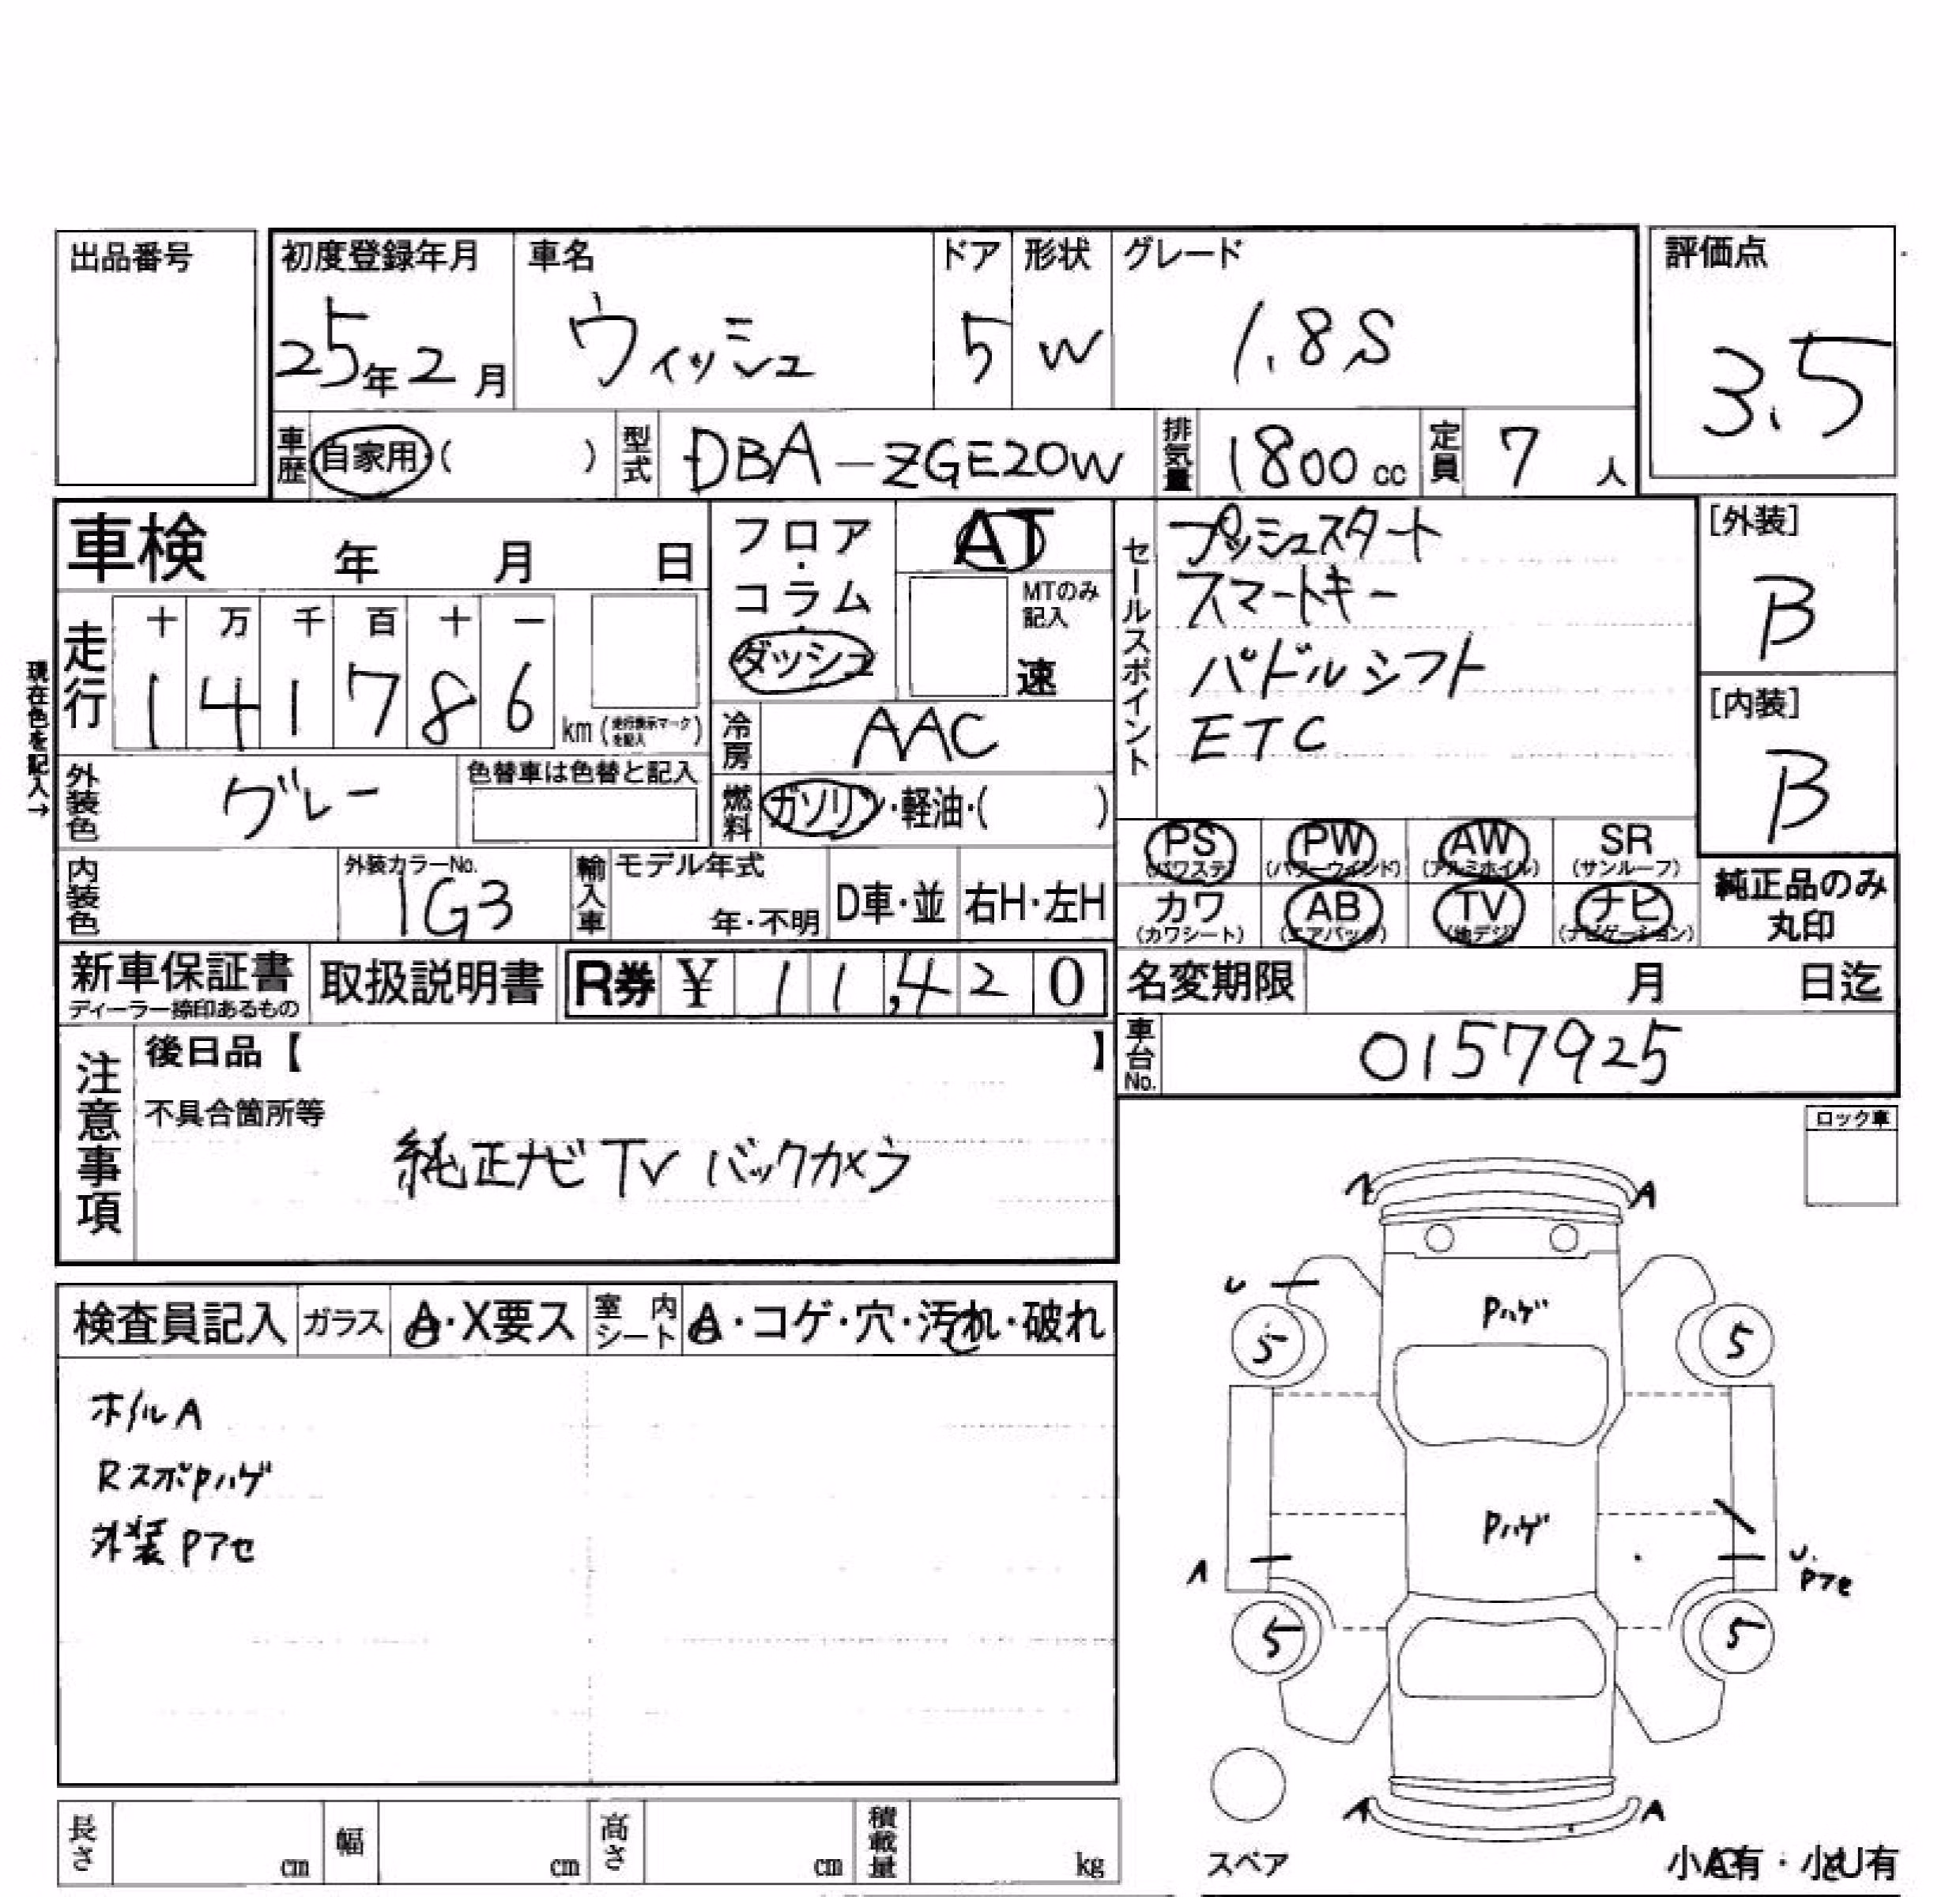 出品番号
初度登録年月 車名 ドア 形状 グレード 評価点
25年2月 ウィッシュ 5 W 1.8S 3.5
車歴 自家用・( ) 型式 DBA-ZGE20W 排気量 1800cc 定員 7人
車検 年 月 日
フロア・コラム・ダッシュ
AT
MTのみ記入
速
セールスポイント
プッシュスタート
スマートキー
パドルシフト
ETC
[外装]
B
[内装]
B
現在色を記入→
走行 十 万 千 百 十 一
141786 km (走行表示マークを記入)
冷房 AAC
外装色 グレー 色替車は色替と記入
燃料 ガソリン・軽油・( )
PS (パワステ) PW (パワーウインド) AW (アルミホイル) SR (サンルーフ)
カワ (カワシート) AB (エアバック) TV (地デジ) ナビ (ナビゲーション)
純正品のみ丸印
内装色 外装カラーNo. 1G3 輸入車 モデル年式 年・不明 D車・並 右H・左H
新車保証書 ディーラー捺印あるもの 取扱説明書 R券 ¥ 11,420
名変期限 月 日迄
車台No. 0157925
注意事項
後日品【 】
不具合箇所等
純正ナビ TV バックカメラ
ロック車
検査員記入 ガラス A・X要ス 室内シート A・コゲ・穴・汚れ・破れ
ホイルA
RスポPハゲ
外装Pアセ
A A
U
Pハゲ
5 5
Pハゲ
A
U.
Pアセ
5 5
A A
スペア
小A有・小U有
長さ cm 幅 cm 高さ cm 積載量 kg